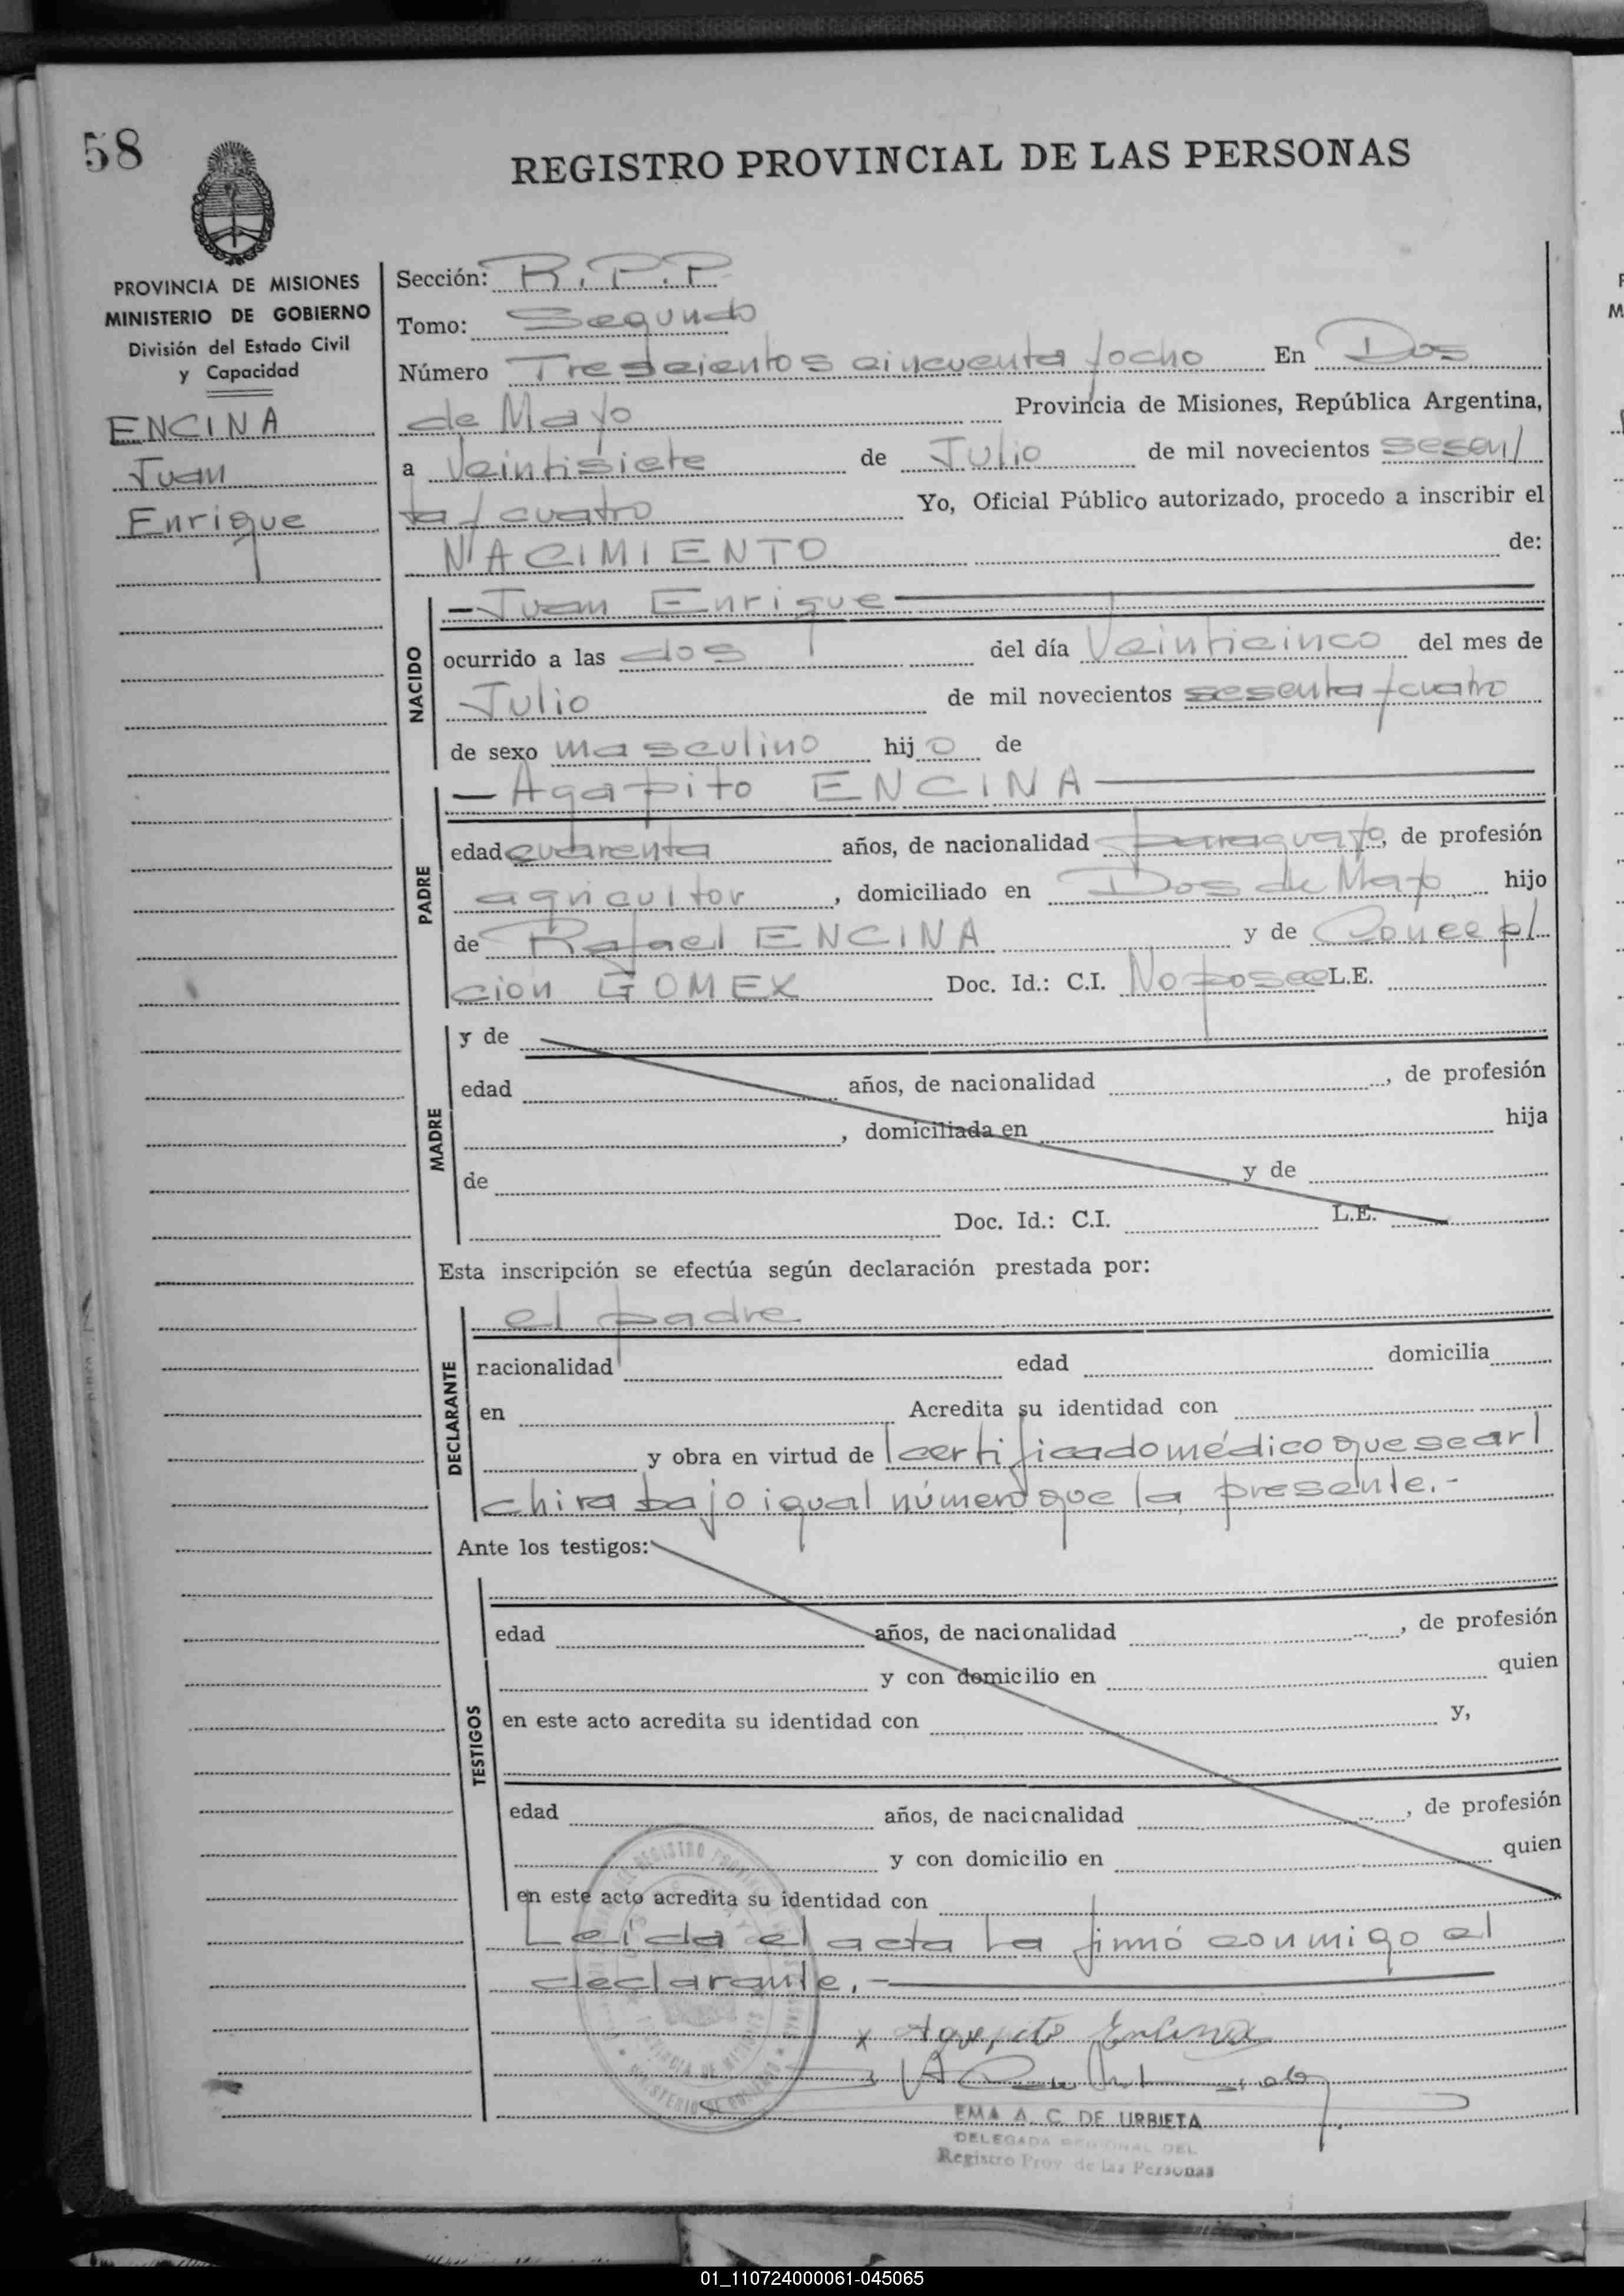 58
REGISTRO PROVINCIAL DE LAS PERSONAS
PROVINCIA DE MISIONES
MINISTERIO DE GOBIERNO
División del Estado Civil
y Capacidad
ENCINA
Juan
Enrique
Sección: R.P.P
Tomo: Segundo
Número Trescientos cincuenta y ocho En Dos
de Mayo Provincia de Misiones, República Argentina,
a Veintisiete de Julio de mil novecientos sesen/
ta y cuatro Yo, Oficial Público autorizado, procedo a inscribir el
NACIMIENTO de:
NACIDO
— Juan Enrique —
ocurrido a las dos del día Veinticinco del mes de
Julio de mil novecientos sesenta y cuatro
de sexo masculino hij o de
PADRE
— Agapito ENCINA —
edad cuarenta años, de nacionalidad paraguayo, de profesión
agricultor, domiciliado en Dos de Mayo hijo
de Rafael ENCINA y de Concep/
ción GOMEX Doc. Id.: C.I. No posee L.E.
MADRE
y de
edad años, de nacionalidad , de profesión
, domiciliada en hija
de y de
Doc. Id.: C.I. L.E.
Esta inscripción se efectúa según declaración prestada por:
DECLARANTE
el padre
nacionalidad edad domicilia
en Acredita su identidad con
y obra en virtud de certificado médico que se ar/
chiva bajo igual número que la presente.-
Ante los testigos:
TESTIGOS
edad años, de nacionalidad , de profesión
y con domicilio en quien
en este acto acredita su identidad con y,
edad años, de nacionalidad , de profesión
y con domicilio en quien
en este acto acredita su identidad con
Leída el acta la firmó conmigo el
declarante.-
x Agapito Encina
EMA A. C. DE URBIETA
DELEGADA REGIONAL DEL
Registro Prov. de las Personas
01_110724000061-045065